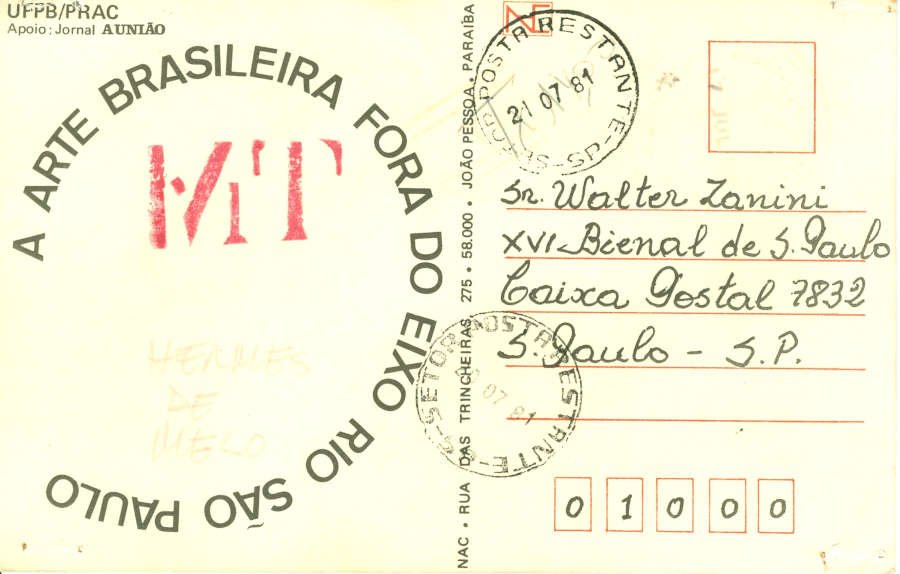 UFPB/PRAC
Apoio: Jornal A UNIÃO
A ARTE BRASILEIRA FORA DO EIXO RIO SÃO PAULO
MT
HERMES
DE
MELO
NAC • RUA DAS TRINCHEIRAS 275 • 58.000 • JOÃO PESSOA • PARAIBA
POSTA RESTANTE-SP-SETOR
21 07 81
Sr. Walter Zanini
XVI-Bienal de S. Paulo
Caixa Postal 7832
S. Paulo - S.P.
SETOR POSTA RESTANTE
07 81
01000